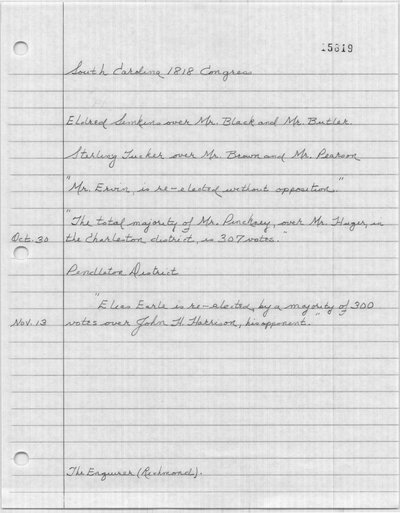 15819
South Carolina 1818 Congress
Eldred Simkins over Mr. Black and Mr. Butler.
Sterling Tucker over Mr. Brown and Mr. Pearson
"Mr. Ervin, is re-elected without opposition."
"The total majority of Mr. Pinckney, over Mr. Huger, in
Oct. 30 the Charleston district, is 307 votes."
Pendleton District
"Elias Earle is re-elected, by a majority of 300
Nov. 13 votes over John H. Harrison, his opponent."
The Enquirer (Richmond).